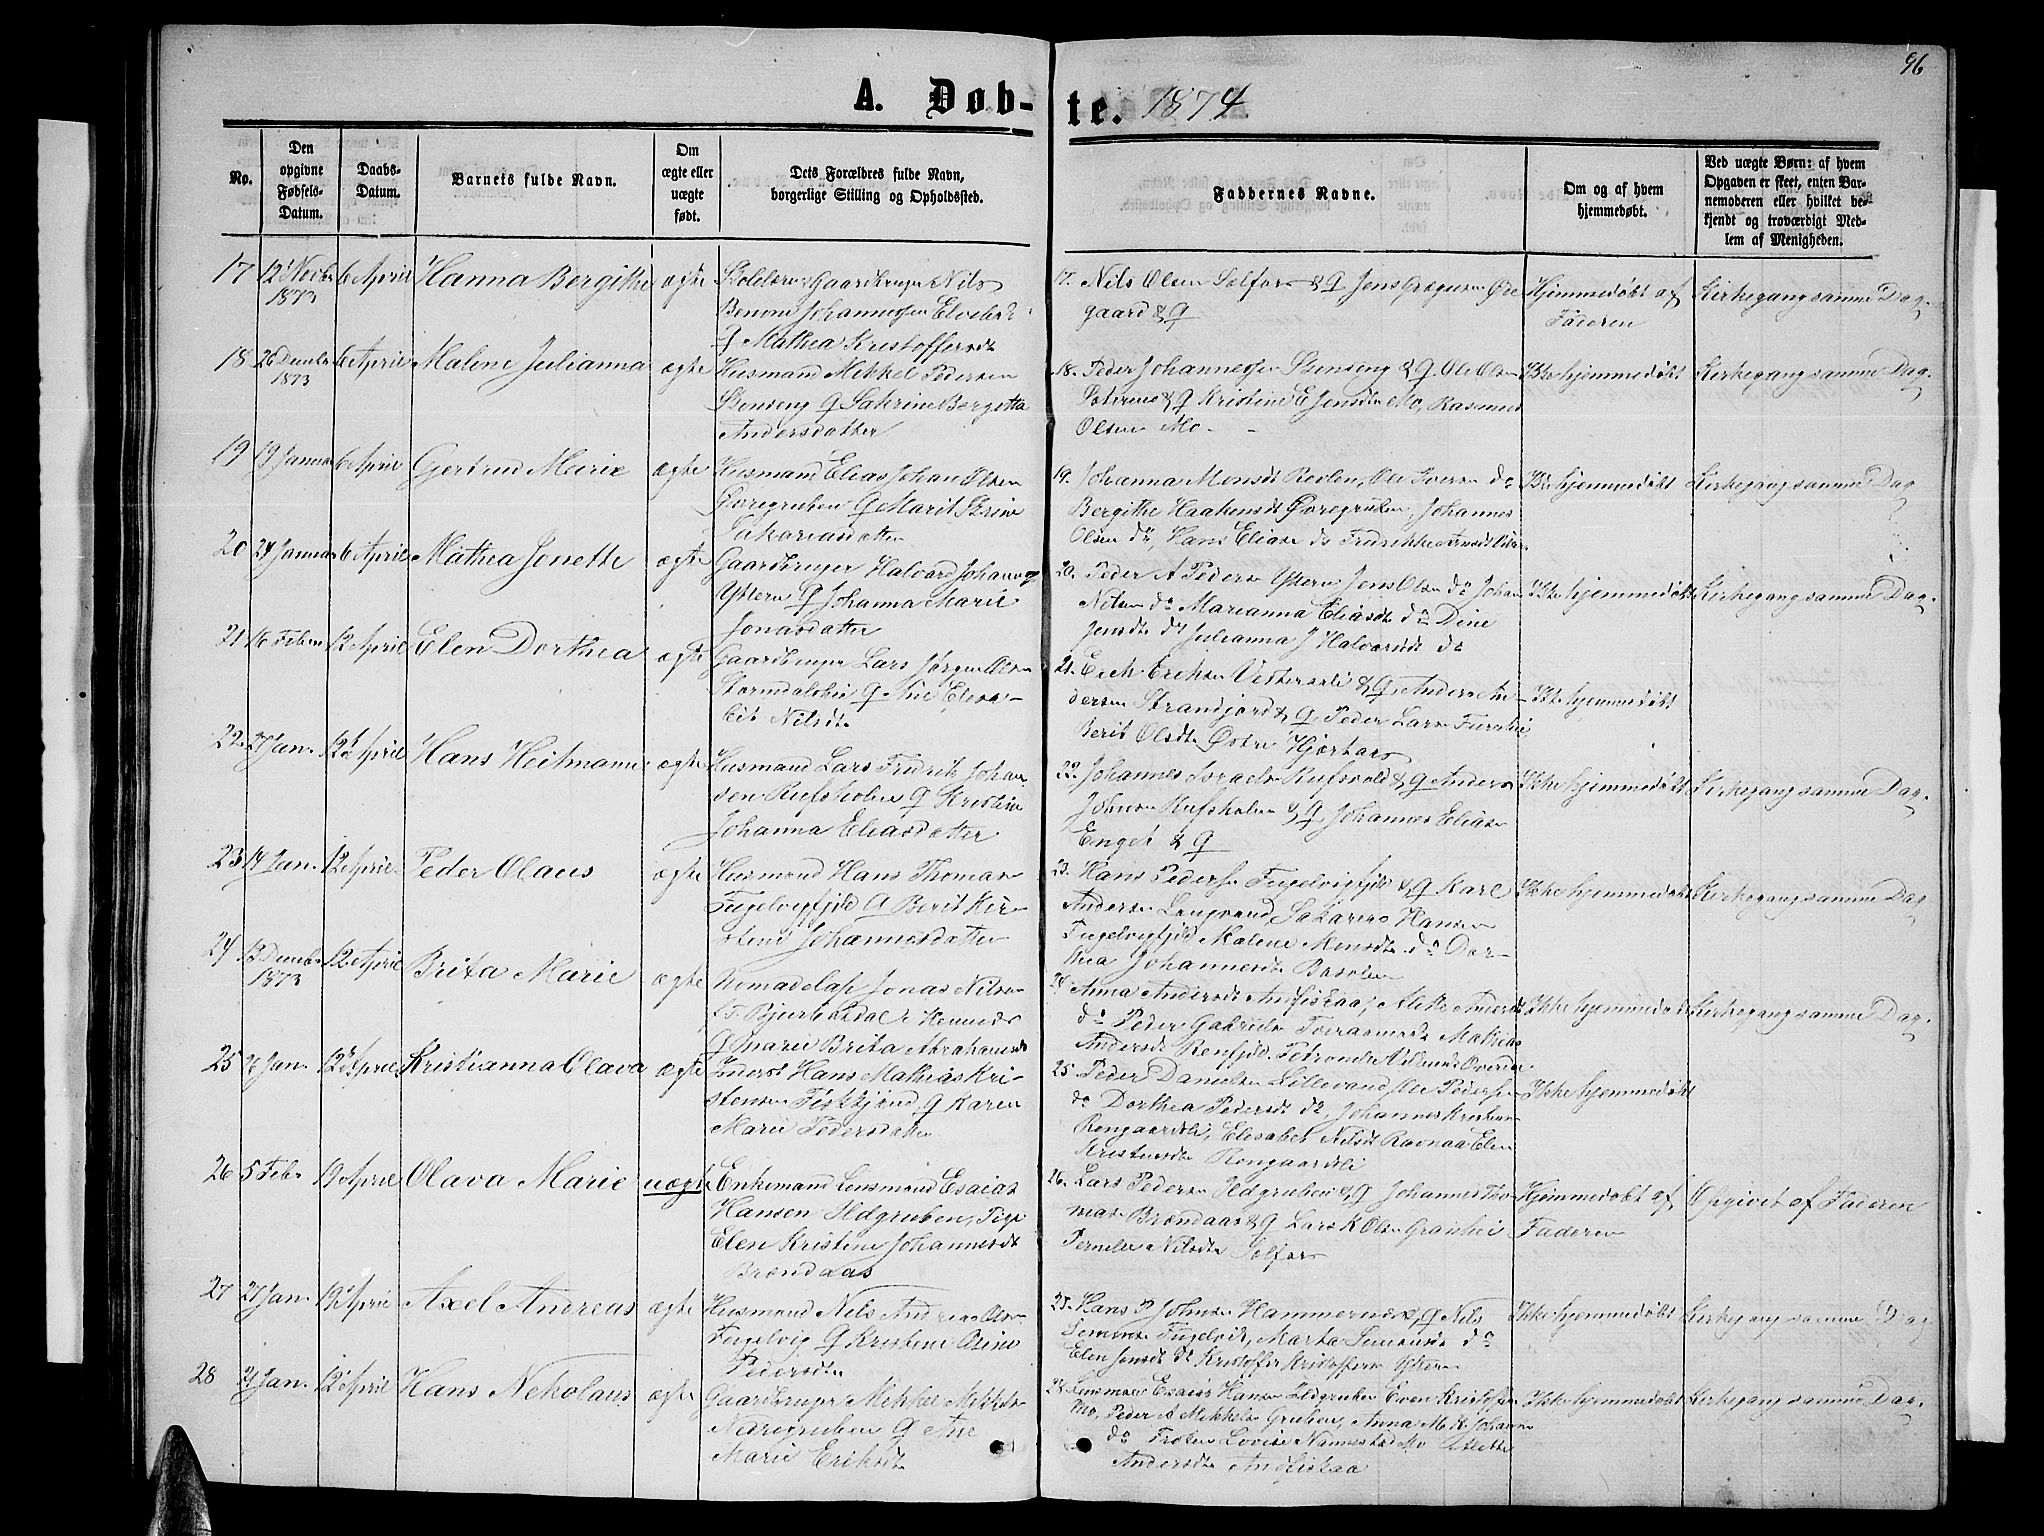 96
A. Døb- te. 1874
No.
Den opgivne Fødsels-Datum.
Daabs-Datum.
Barnets fulde Navn.
Om ægte eller uægte født.
Dets Forældres fulde Navn, borgerlige Stilling og Opholdssted.
Faddernes Navne.
Om og af hvem hjemmedøbt.
Ved uægte Børn: af hvem Opgaven er skeet, enten Barnemoderen eller hvilket bekjendt og troværdigt Medlem af Menigheden.
17 12 Novbr 1873 6 April Hanna Bergitte ægte
Gaardbruger Nils
Benoni Johannessen
& Mathea Kristoffersdt
17. Nils Olsen Solfor & Q Jens
gaard & Q
Hjemmedøbt af
Faderen
Kirkegang samme Dag.
18 26 Decmbr 1873 6 April Malene Julianna ægte
Husmand Mikkel Pedersen
Stenseng Q Sakrine Bergitta
Andersdatter
18. Peder Johannessen Stenseng & Q Ole Olsen
& Q Kristine E Jensdtr Mo, Rasmus
Olsen Mo
Ikke hjemmedøbt
Kirkegang samme Dag.
19 19 Januar 6 April Gertrud Marie ægte
Husmand Elias Johan Olsen
Øvregruben Q Marit Strine
Sakariasdatter
19. Johanna Monsdt Ole Iversen do
Bergithe Haakensdt Øvregruben, Johannes
Olsen do, Hans Eliasen do Fredrikke
Ikke hjemmedøbt
Kirkegang samme Dag
20 24 Januar 6 April Mathea Jonette ægte
Gaardbruger Halvard Johans
Yttern Q Johanna Marie
Jonasdatter
20. Peder A Pedersen Yttern Jens Olsen do Johan
Nilsen do Marianna Eliasdtr do Dine
Jensdtr do Julianna J Halvorsdt do
Ikke hjemmedøbt
Kirkegang samme Dag.
21 16 Febr 12 April Elen Dorthea ægte
Gaardbruger Lars Jørgen Olsen
Stormdalshei Q Ane Elisa-
bet Nilsdtr
21. Erik Eriksen Vesterali & Q, Anders An-
dersen Strandjord & Q Peder Larsen Furuhei
Berit Olsdtr Østre Hjertaas
Ikke hjemmedøbt
22 27 Jan. 12 April Hans Heitmann ægte
Husmand Lars Fredrik Johan
sen Rufsholm Q Kristine
Johanna Eliasdatter
22. Johannes Israelsen Rufsvold & Q Anders
Johnsen Rufsholm & Q Johannes Eliasen
Enget & Q
Ikke hjemmedøbt
Kirkegang samme Dag.
23 14 Jan. 12 April Peder Olaus ægte
Husmand Hans Thomas
Fugelvigfjeld Q Berit Kir-
stine Johannesdatter
23. Hans Pedersen Fugelvigfjeld & Q Karl
Andersen Langvand, Sakarias Hansen
Fugelvigfjeld Malene Monsdtr do Dor-
thea Johannesdtr
Ikke hjemmedøbt
Kirkegang samme Dag
24 13 Decmbr 1873 12 April Brita Marie ægte
Nomadelap Jonas Nilsen
Bjurbækdal i Hemnes
Q Marie Brita Abrahamsdt
24. Anna Andersdt Andfiskaa, Alette Andersdt
do Peder Gabrielsen Toeraanes Mathias
Andersen Renfjeld. Petronelle
Ikke hjemmedøbt
Kirkegang samme Dag.
25 26 Jan. 12 April Kristianna Olava ægte
Inderst Hans Mathias Kri-
stensen Fisktjønd, Q Karen
Marie Pedersdatter
25. Peder Danielsen Lillevand, Ole Pedersen
do Dorthea Pedersdt do, Johannes Kristian
Rengaardsli, Elisabet Nilsdt Ravnaa Elen
Kristensdtr Rengaardsli
Ikke hjemmedøbt
26 5 Febr 19 April Olava Marie uægte
Enkemand Lensmand Esaias
Hansen Ildgruben, Pige
Elen Kristine Johannesdt
Brændaas
26. Lars Pedersen Ildgruben & Q Johannes Tho
masen Brændaas & Q Lars K Olsen Granhei
Pernele Nilsdtr Solfor
Hjemmedøbt af
Faderen
Opgivet af Faderen
27 27 Jan. 19 April Axel Andreas ægte
Husmand Nils Andreas Olsen
Fugelvig Q Kristine Oline
Pedersdtr
27. Hans P Johnsen Hammernæs, Q Nils
Fugelvik, Marta do
Elen Jonsdt do Kristoffer Kristoffersen Yttern
Ikke hjemmedøbt
Kirkegang samme Dag
28 21 Jan. 12 April Hans Nikolaus ægte
Gaardbruger Mikkel Mikkels
Nøregruben Q Ane
Marie Eriksdtr
28. Lensmand Esaias Hansen Ildgruben Even Kristofersen
Mo, Peder A Mikkelsen Gruben, Anna M K Johansen
do Frøken Lovise Nannestad Mo Alette
Andersdtr Andfiskaa
Ikke hjemmedøbt
Kirkegang samme Dag.